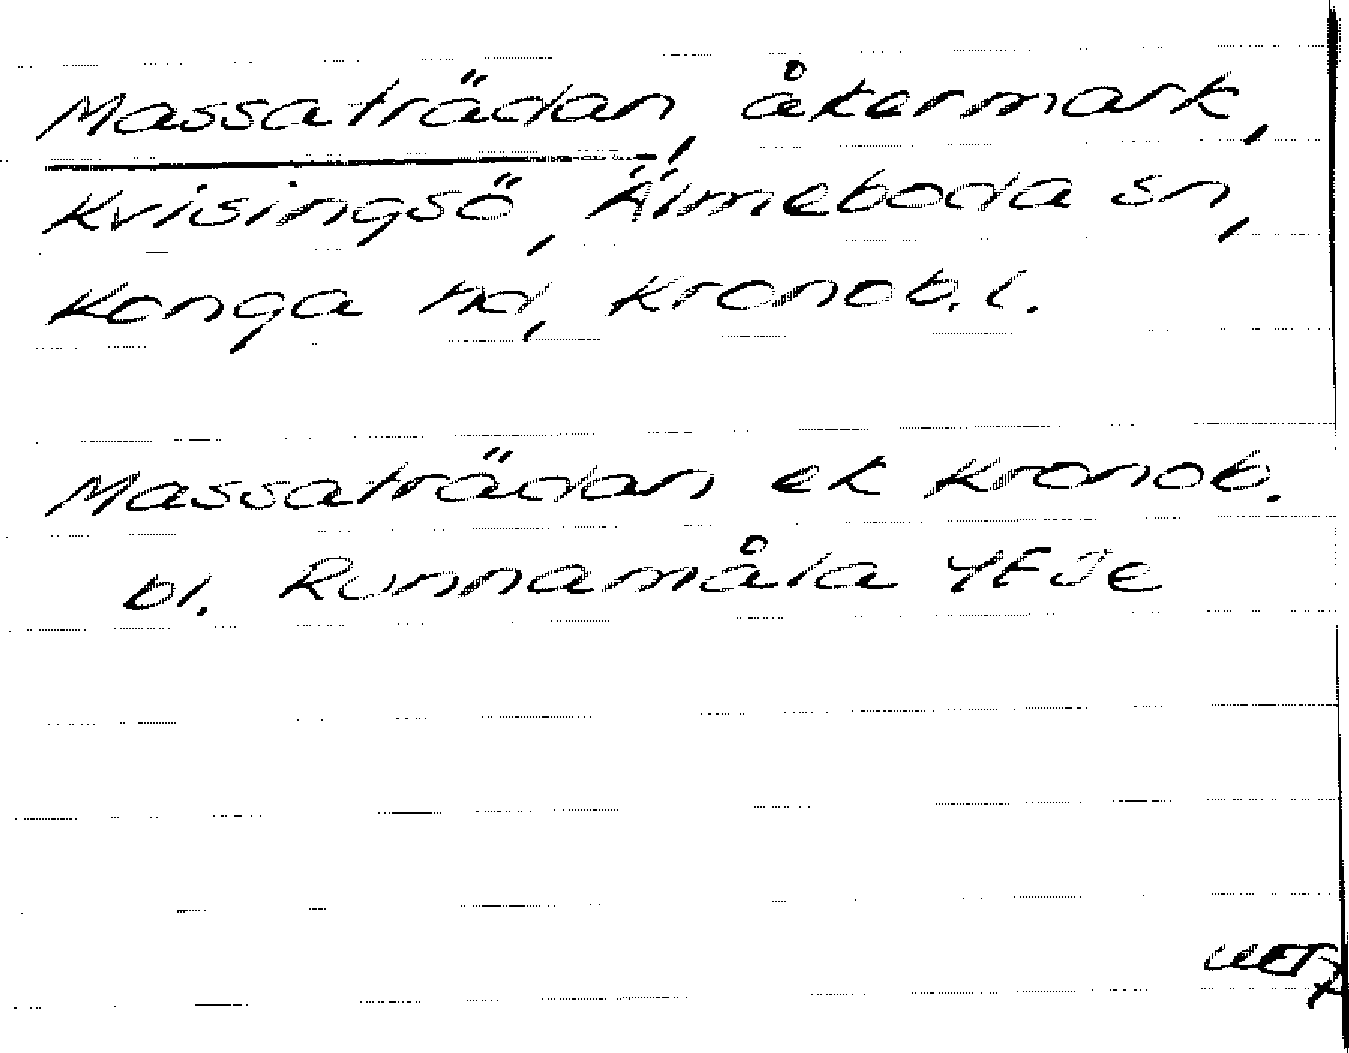 Massaträdan, åkermark,
Kvisingsö, Älmeboda sn,
Konga hd, Kronob. l.
Massaträdan ek Kronob.
bl. Runnamåla 4F0e